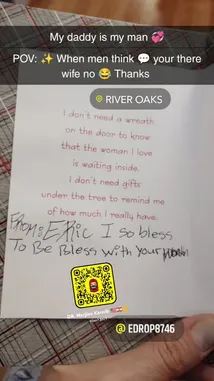 My daddy is my man 💞
POV: ✨ When men think 💬 your there
wife no 😂 Thanks
RIVER OAKS
I don't need a wreath
on the door to know
that the woman I love
is waiting inside.
I don't need gifts
under the tree to remind me
of how much I really have.
FROM: ERIC I so bless
To Be Bless with your
@ EDROP8746